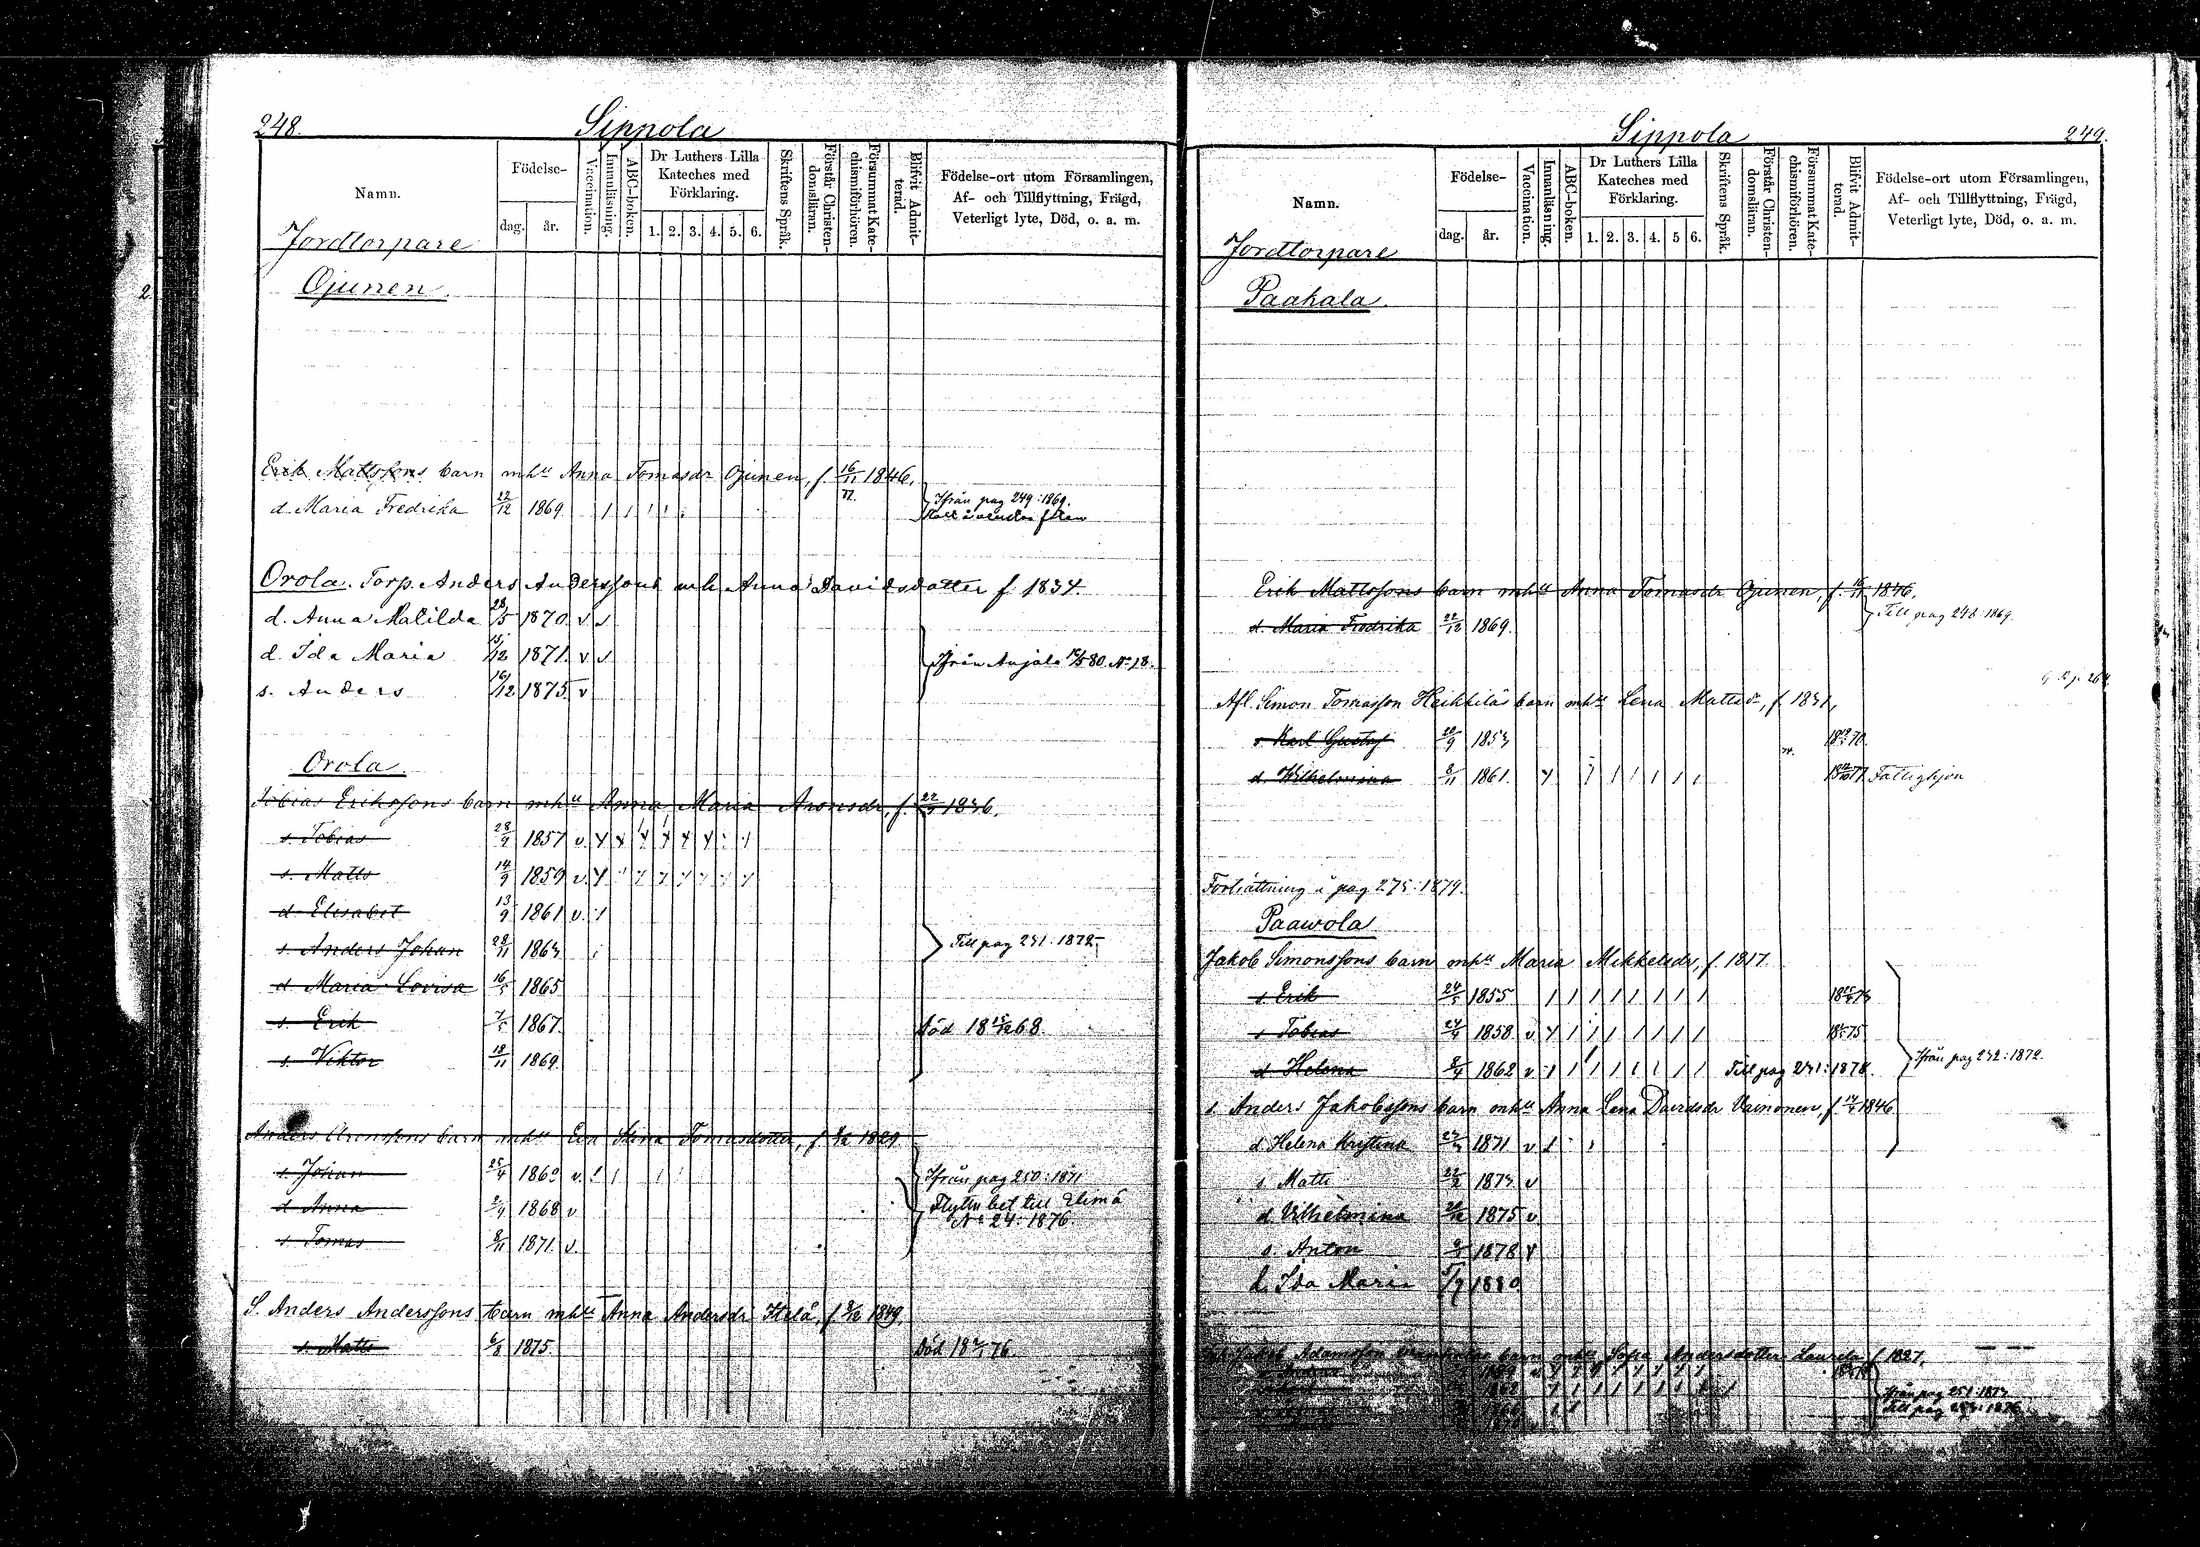 248.
Sippola
Namn.
Födelse-
dag.
år.
Vaccination.
Innanläsning.
ABC-boken.
Dr Luthers Lilla
Kateches med
Förklaring.
1. 2. 3. 4. 5. 6.
Skriftens Språk.
Förstår Christen-
domsläran.
Försummat Kate-
chismiförhören.
Blifvit Admit-
terad.
Födelse-ort utom Församlingen,
Af- och Tillflyttning, Frägd,
Veterligt lyte, Död, o. a. m.
Jordtorpare
Ojunen.
Erik Mattssons barn mhu Anna Tomasdr Ojunen, f. 16/11 1846.
d. Maria Fredrika 22/12 1869 Ifrån pag 249:1869.
Orola. Torp. Anders Anderssons mh. Anna Davidsdotter f. 1834.
d. Anna Matilda 28/5 1870. v
d. Ida Maria /12 1871. v
Ifrån Anjala 80. No 18.
s. Anders 16/12 1875 v
Orola
Tobias Erikssons barn mhu Anna Maria Aronsdr, f. 1836.
s. Tobias 28/9 1857 v
s. Matts 14/9 1859 v
d. Elisabet 13/9 1861 v
s. Anders Johan 28/11 1863 Till pag 231:1872
d. Maria Lovisa 16/5 1865
s. Erik 7/5 1867. Död 18 15/12 68.
s. Viktor 18/11 1869.
Anders Aronssons barn mhu Eva Stina Tomasdotter, f.
s. Johan 25/4 1860 v. Ifrån pag 250:1871
d. Anna 2/9 1868 v Flyttn bet till Elimä
No 24:1876.
s. Tomas 8/11 1871 v.
S. Anders Anderssons barn mhu Anna Andersdr Itelä, f. 1849.
s. Matts 6/8 1875. Död 18 76.
Sippola
249.
Namn.
Födelse-
dag.
år.
Vaccination.
Innanläsning.
ABC-boken.
Dr Luthers Lilla
Kateches med
Förklaring.
1. 2. 3. 4. 5 6.
Skriftens Språk.
Förstår Christen-
domsläran.
Försummat Kate-
chismiförhören.
Blifvit Admit-
terad.
Födelse-ort utom Församlingen,
Af- och Tillflyttning, Frägd,
Veterligt lyte, Död, o. a. m.
Jordtorpare
Paahala.
Erik Mattssons barn mhu Anna Tomasdr Ojunen, f. 16/11 1846.
d. Maria Fredrika 22/12 1869. Till pag 248:1869.
Afl. Simon Tomasson Heikkiläs barn mhu Lena Mattsdr, f. 1831,
s. Karl Gustaf 20/9 1853 70.
d. Wilhelmina 8/11 1861. 77. Fattighjon
Fortsättning å pag 275:1879.
Paawola
Jakob Simonssons barn mhu Maria Mikkelsdr, f. 1817.
s. Erik 24/5 1855 73
s. Tobias 27/4 1858 v 75
d. Helena 8/4 1862 v Till pag 231:1878.
Ifrån pag 232:1872.
s. Anders Jakobssons barn mhu Anna Lena Davidsdr Vainonen, f. 1846
d. Helena Kristina 1871 v
s. Matts 1873 v
d. Vilhelmina 1875 v
s. Anton 1878
d. Ida Maria 5/7 1880
Jakob Adamsson barn mhu Sofia Andersdotter Laurela f. 1827,
Ifrån pag 251:1873
Till pag 1876